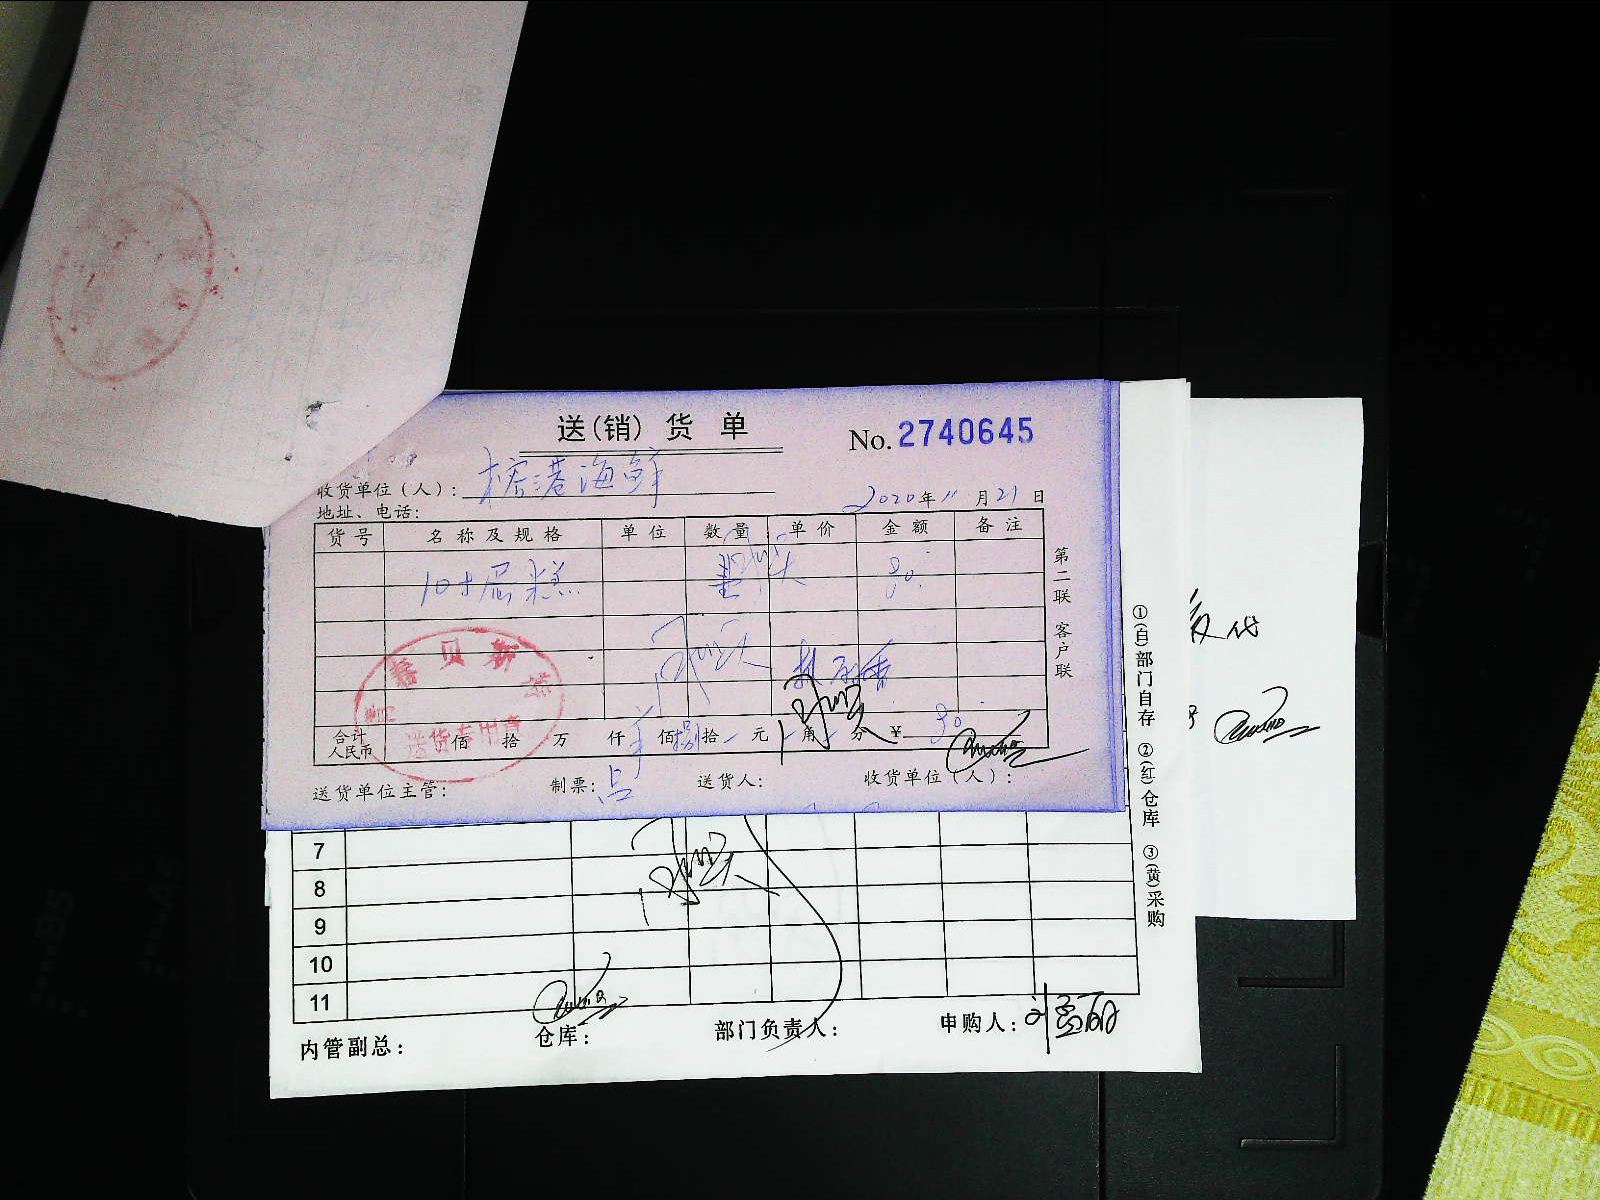 送(销)货单
No. 2740645
收货单位（人）： 榕港海鲜
2020年11月21日
地址、电话：
货号 名称及规格 单位 数量 单价 金额 备注
10寸 糕 80.
合计
人民币 佰 拾 万 仟 佰 捌拾 元 角 分 ¥ 80.
送货单位主管： 制票： 送货人： 收货单位（人）：
第二联 客户联
贝斯
送货专用章
7
8
9
10
11
内管副总： 仓库： 部门负责人： 申购人：
①(自)部门自存 ②(红)仓库 ③(黄)采购